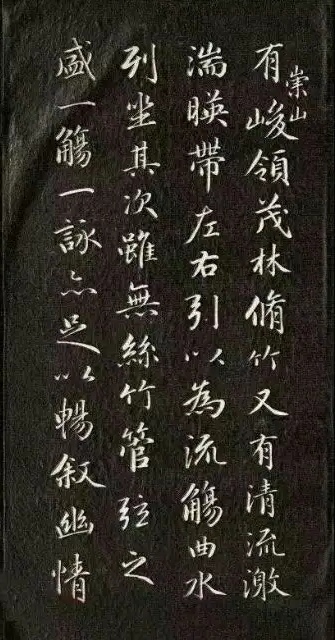 有崇山峻領茂林脩竹又有清流激
湍暎帶左右引以為流觴曲水
列坐其次雖無絲竹管弦之
盛一觴一詠亦足以暢叙幽情